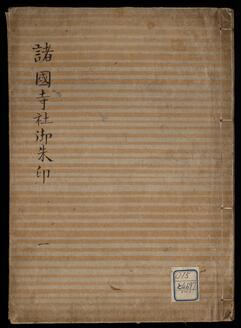 諸國寺社御朱印
一
015